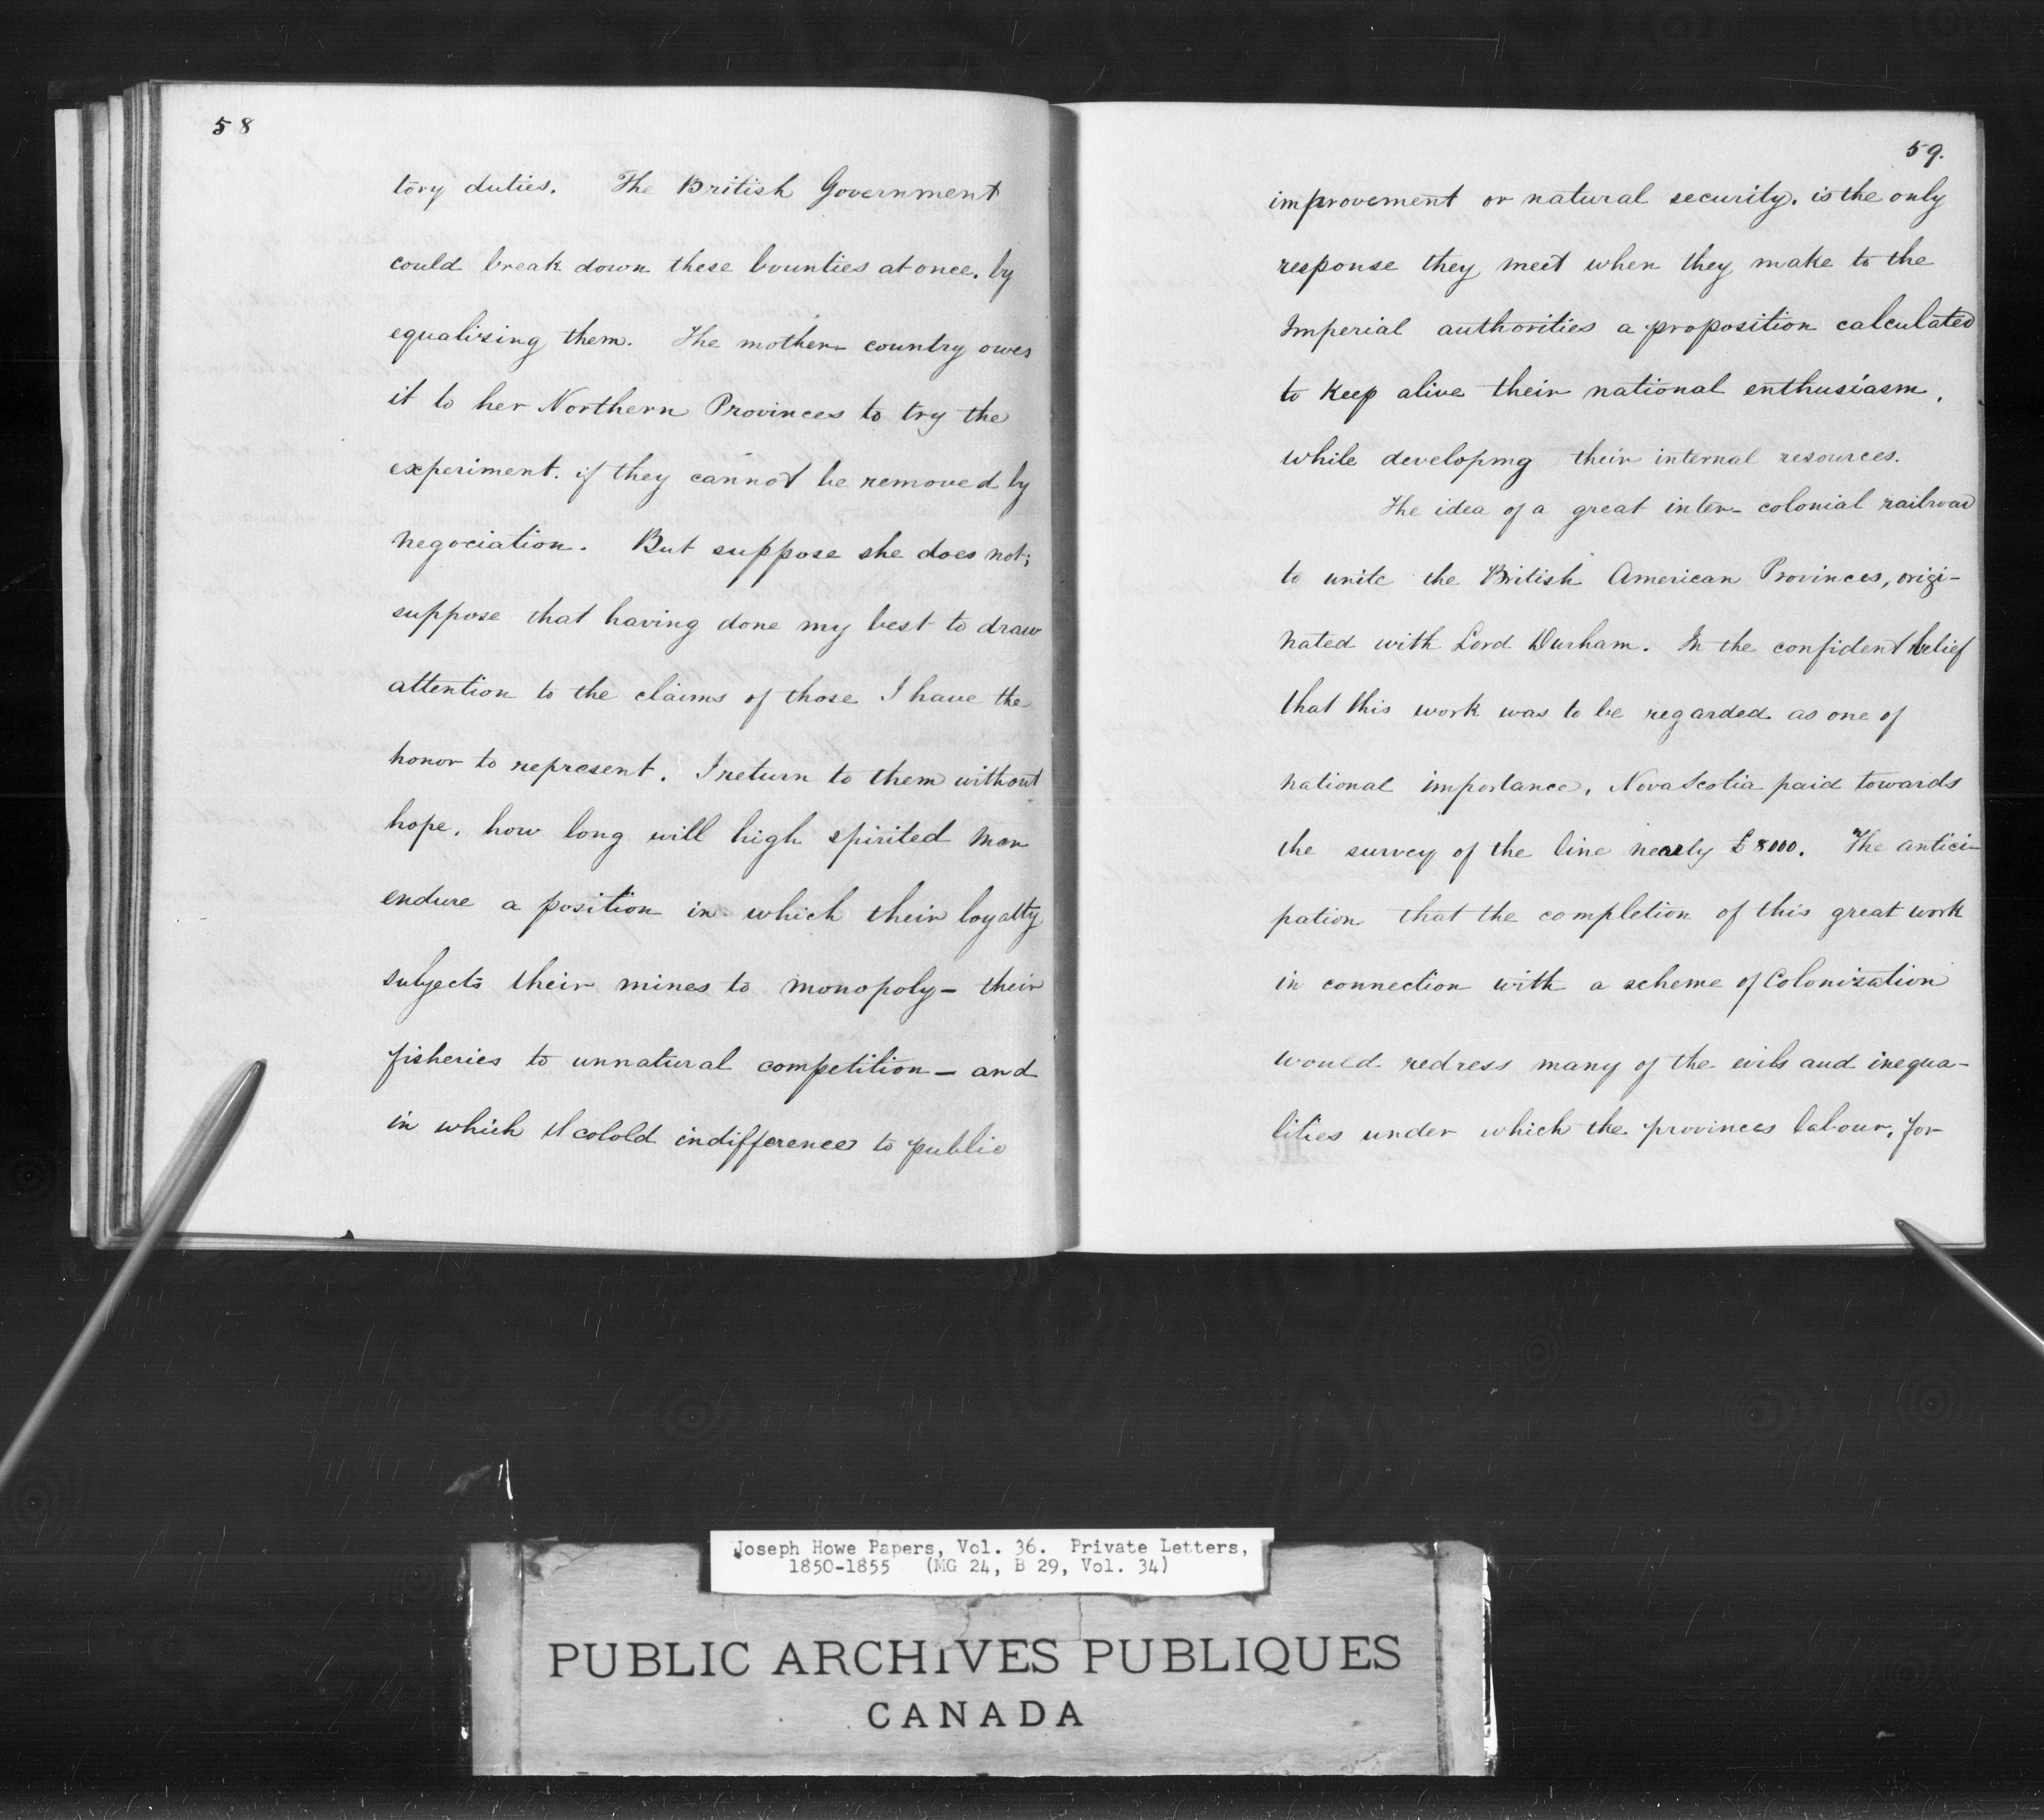 58
tory duties. The British Government
could break down these bounties at once, by
equalising them. The mother-country owes
it to her Northern Provinces to try the
experiment. if they cannot be removed by
negociation. But suppose she does not;
suppose that having done my best to draw
attention to the claims of those I have the
honor to represent. I return to them without
hope. how long will high spirited men
endure a position in which their loyalty
subjects their mines to monopoly - their
fisheries to unnatural competition - and
in which cold indifference to public
59.
improvement or natural security. is the only
response they meet when they make to the
Imperial authorities a proposition calculated
to keep alive their national enthusiasm,
while developing their internal resources.
The idea of a great inter-colonial railroad
to unite the British American Provinces, origi-
nated with Lord Durham. In the confident belief
that this work was to be regarded as one of
national importance, Nova Scotia paid towards
the survey of the line nearly £8000. The antici-
pation that the completion of this great work
in connection with a scheme of Colonization
would redress many of the evils and inequa-
lities under which the provinces labour, for
Joseph Howe Papers, Vol. 36. Private Letters,
1850-1855 (MG 24, B 29, Vol. 34)
PUBLIC ARCHIVES PUBLIQUES
CANADA